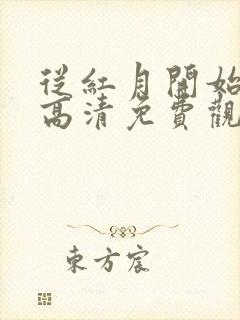 從紅月開始
高清免費觀
東方宸